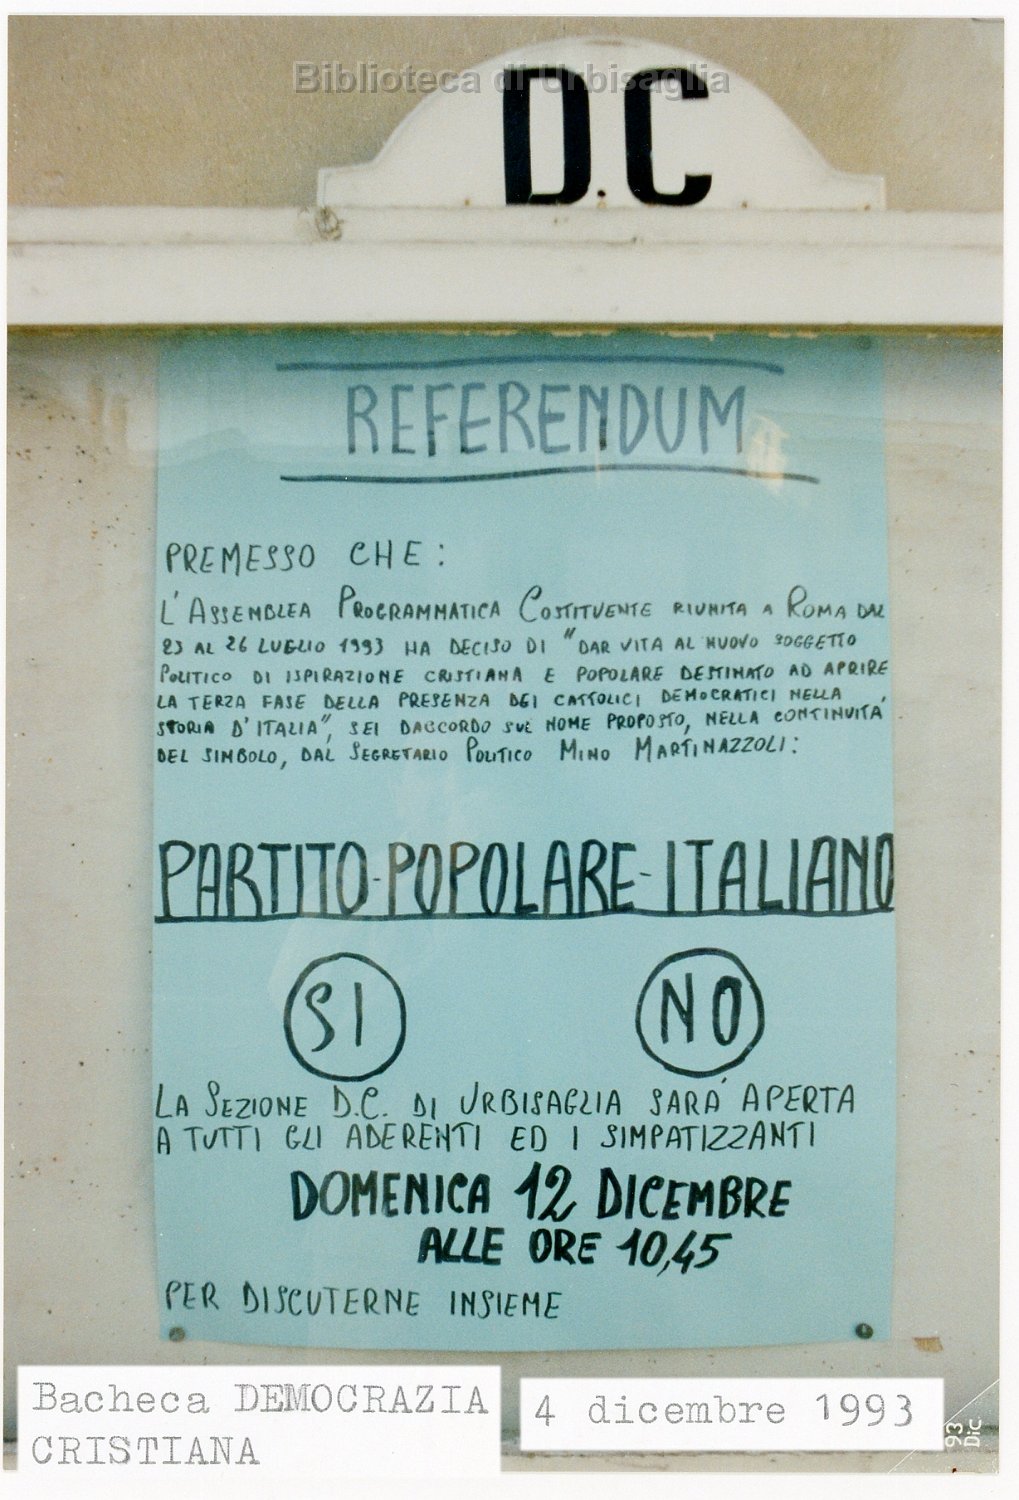 Biblioteca di Urbisaglia
D.C
REFERENDUM
PREMESSO CHE:
L'ASSEMBLEA PROGRAMMATICA COSTITUENTE RIUNITA A ROMA DAL
23 AL 26 LUGLIO 1993 HA DECISO DI "DAR VITA AL NUOVO SOGGETTO
POLITICO DI ISPIRAZIONE CRISTIANA E POPOLARE DESTINATO AD APRIRE
LA TERZA FASE DELLA PRESENZA DEI CATTOLICI DEMOCRATICI NELLA
STORIA D'ITALIA", SEI DACCORDO SUL NOME PROPOSTO, NELLA CONTINUITA'
DEL SIMBOLO, DAL SEGRETARIO POLITICO MINO MARTINAZZOLI:
PARTITO-POPOLARE-ITALIANO
SI NO
LA SEZIONE D.C. DI URBISAGLIA SARA' APERTA
A TUTTI GLI ADERENTI ED I SIMPATIZZANTI
DOMENICA 12 DICEMBRE
ALLE ORE 10,45
PER DISCUTERNE INSIEME
Bacheca DEMOCRAZIA
CRISTIANA
4 dicembre 1993
93
DiC